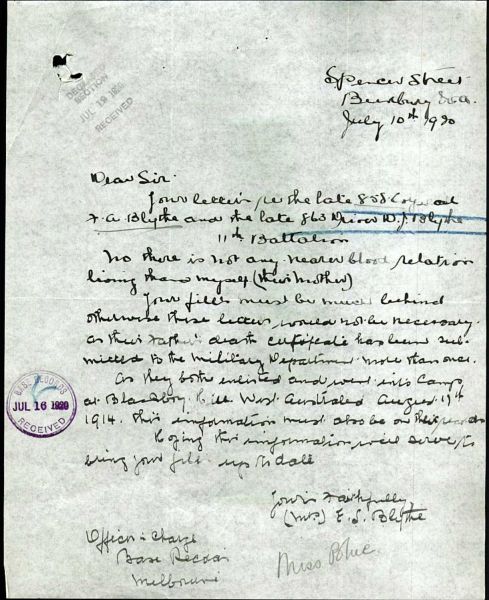 DECEASED
SECTION
JUL 19 1920
RECEIVED
Spencer Street
Bunbury W.A.
July 10th 1920
Dear Sir.
Your letters re the late 858
F. A. Blythe and the late 863 Driver W. J. Blythe
11th Battalion
No there is not any nearer blood relation
living than myself (their mother)
Your files must be much behind
otherwise these letters would not be necessary.
as their Father's death certificate has been sub-
mitted to the Military Department more than once.
As they both enlisted and went into Camp
at Blackboy Hill West Australia August 15th
1914. this information must also be on their records
Hoping this information will serve to
bring your files up to date
Yours Faithfully
(Mrs) E. S. Blythe
Officer i Charge
Base Records
Melbourne
Miss Blue.
BASE RECORDS
JUL 16 1920
RECEIVED